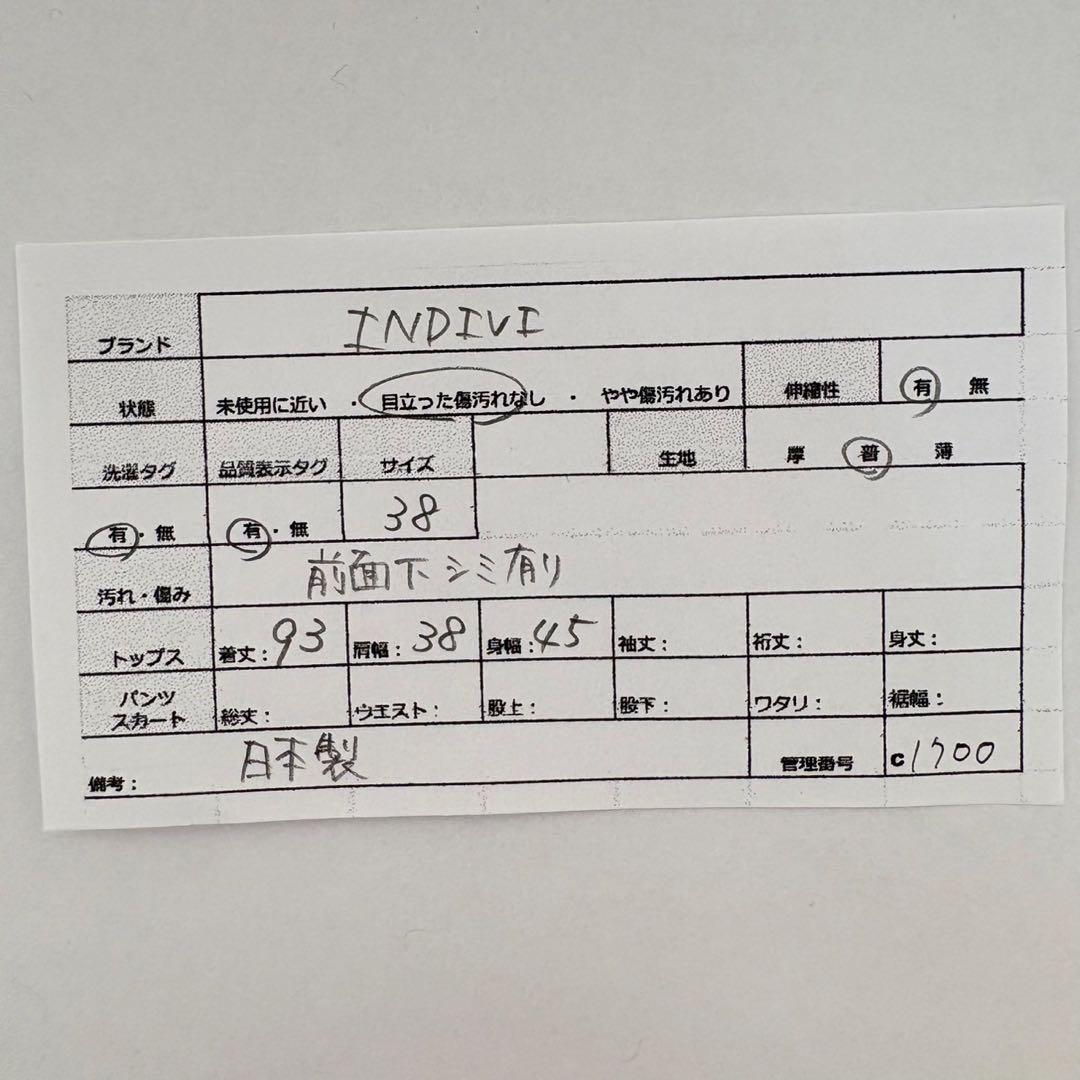 ブランド INDIVI
状態 未使用に近い ・ 目立った傷汚れなし ・ やや傷汚れあり 伸縮性 有 無
洗濯タグ 品質表示タグ サイズ 生地 厚 普 薄
有・無 有・無 38
汚れ・傷み 前面下シミ有り
トップス 着丈：93 肩幅：38 身幅：45 袖丈： 裄丈： 身丈：
パンツ
スカート 総丈： ウエスト： 股上： 股下： ワタリ： 裾幅：
備考： 日本製 管理番号 C1700